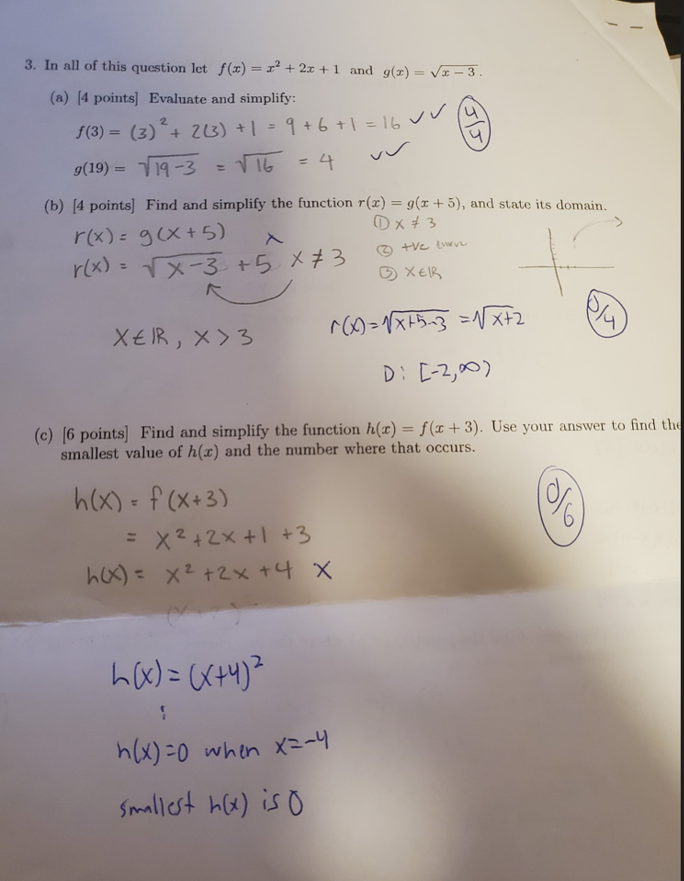 3. In all of this question let f(x) = x² + 2x + 1 and g(x) = √(x − 3).
(a) [4 points] Evaluate and simplify:
f(3) = (3)² + 2(3) + 1 = 9 + 6 + 1 = 16 ✓✓ 4/4
g(19) = √(19-3) = √16 = 4 ✓✓
(b) [4 points] Find and simplify the function r(x) = g(x + 5), and state its domain.
r(x) = g(x+5) ① x ≠ 3
r(x) = √(x-3) + 5 x ≠ 3 ② +ve
③ x∈ℝ
x∈ℝ, x > 3
r(x) = √(x+5-3) = √(x+2) 0/4
D: [-2,∞)
(c) [6 points] Find and simplify the function h(x) = f(x + 3). Use your answer to find the
smallest value of h(x) and the number where that occurs.
h(x) = f(x+3) 0/6
= x² + 2x + 1 + 3
h(x) = x² + 2x + 4 X
h(x) = (x+4)²
⋮
h(x)=0 when x=-4
smallest h(x) is 0